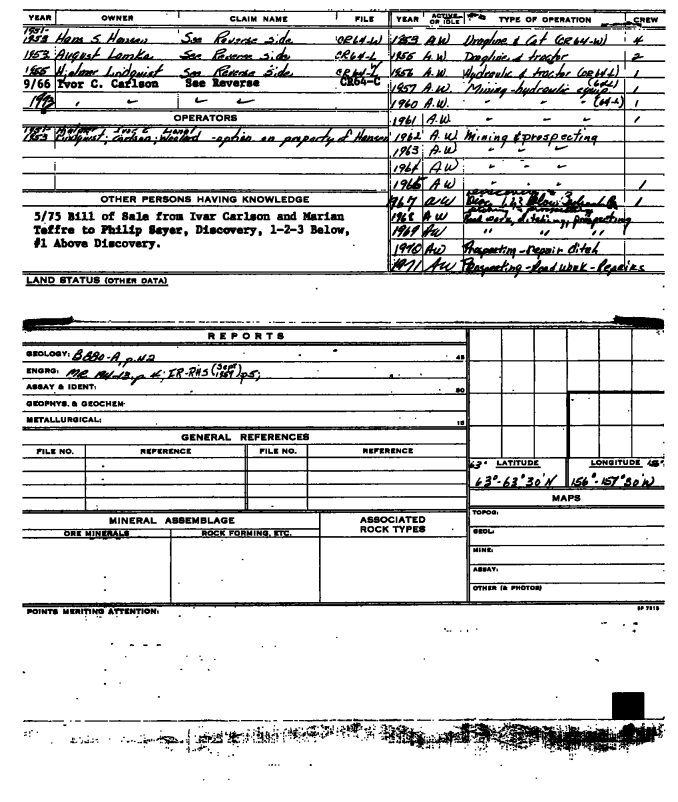 YEAR OWNER CLAIM NAME FILE YEAR ACTIVE OR IDLE TYPE OF OPERATION CREW
1951-
1952 Hans S. Hansen See Reverse side CR64-W 1953 A.W. Dragline & Cat (CR64-W) 4
1953 August Lomka See Reverse side CR64-L 1955 A.W. Dragline & tractor 2
1955 Hjalmer Lindquist See Reverse side. CR64-L 1956 A.W. Hydraulic & tractor (CR64-L) 1
9/66 Ivor C. Carlson See Reverse CR64-C 1957 A.W. Mining-hydraulic equip (64-L) 1
" " " 1960 A.W. " " " (64-L) 1
OPERATORS 1961 A.W. " " " 1
1953 Lindquist; Carlson; - option on property of Hansen 1962 A.W. Mining & prospecting
1963 A.W. " " "
1964 A.W. " " "
1965 A.W. 1
OTHER PERSONS HAVING KNOWLEDGE 1967 AW 1
5/75 Bill of Sale from Ivar Carlson and Marian 1968 AW Road work, ditching, prospecting
Teffre to Philip Sayer, Discovery, 1-2-3 Below, 1969 AW " " "
#1 Above Discovery. 1970 AW Prospecting - Repair ditch
1971 AW Prospecting - Road work - Repairs
LAND STATUS (OTHER DATA)
REPORTS
GEOLOGY: B880-A, p.42 45
ENGRG: MR 194-13, p 4; IR-RHS (Sept 1957) p5;
ASSAY & IDENT: 50
GEOPHYS. & GEOCHEM.
METALLURGICAL: 15
GENERAL REFERENCES
FILE NO. REFERENCE FILE NO. REFERENCE
63° LATITUDE LONGITUDE 156°
63°-63°30'N 156°-157°30'W
MAPS
MINERAL ASSEMBLAGE ASSOCIATED ROCK TYPES TOPOG:
ORE MINERALS ROCK FORMING, ETC. GEOL:
MINE:
ASSAY:
OTHER (& PHOTOS)
POINTS MERITING ATTENTION: SP 7815